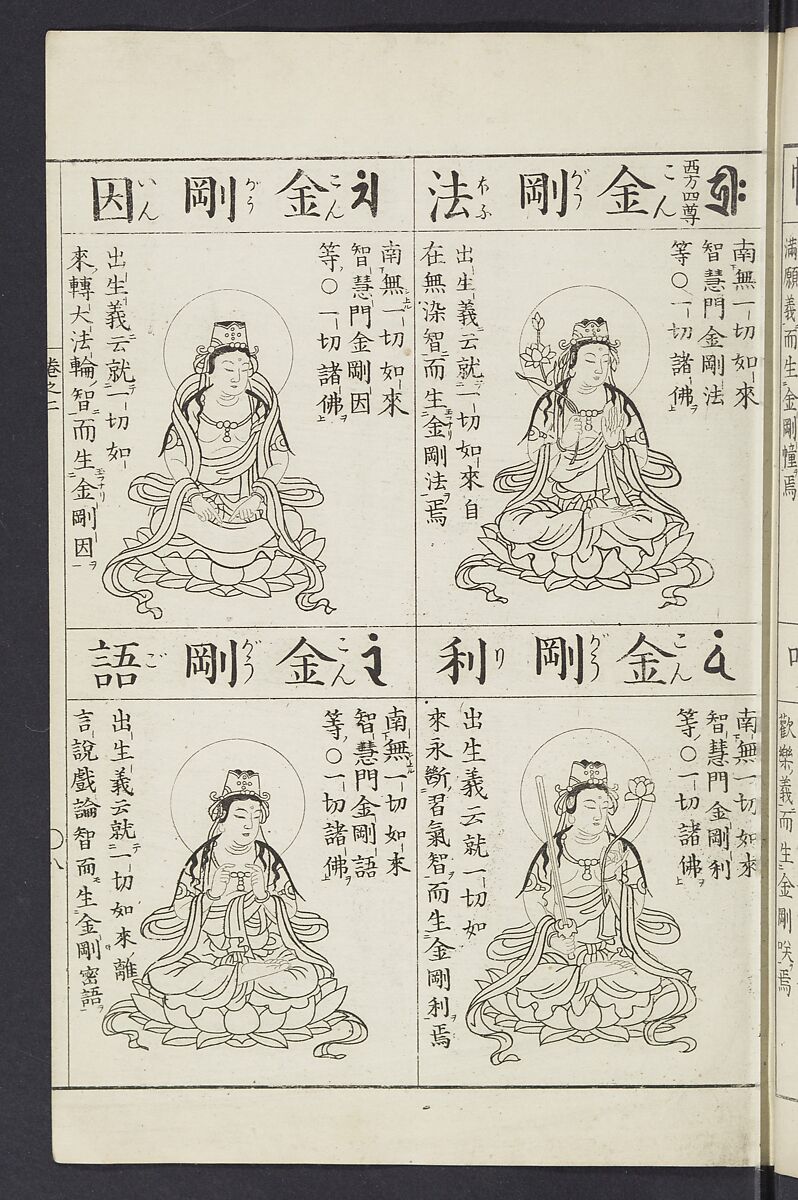 西方四尊
金剛法
こんがうほふ
南無一切如來
智慧門金剛法
等〇一切諸佛
出生義云就一切如來自
在無染智而生金剛法焉
金剛因
こんがういん
南無一切如來
智慧門金剛因
等〇一切諸佛
出生義云就一切如
來轉大法輪智而生金剛因
金剛利
こんがうり
南無一切如來
智慧門金剛利
等〇一切諸佛
出生義云就一切如
來永斷習氣智而生金剛利焉
金剛語
こんがうご
南無一切如來
智慧門金剛語
等〇一切諸佛
出生義云就一切如來離
言說戲論智而生金剛密語
卷之二
〇八
滿願義而生金剛幢焉
歡樂義而生金剛咲焉